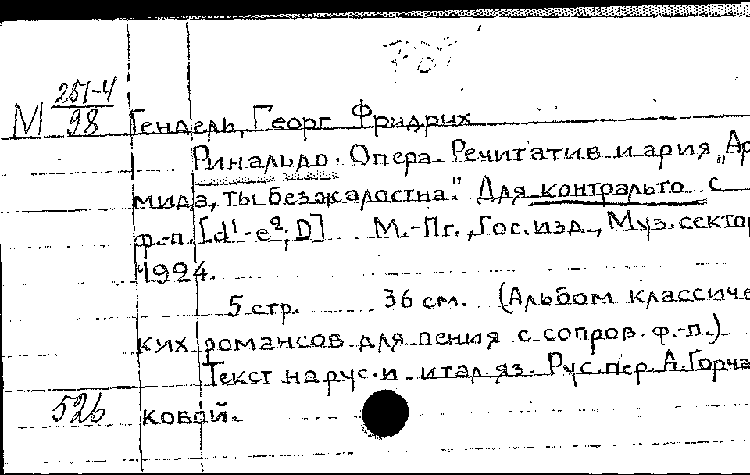 М 251-4
98
Гендель, Георг Фридрих
Ринальдо. Опера. Речитатив и ария „Ар
мида, ты безжалостна." Для контральто с
ф.-п. [d¹-e²; D] М.-Пг., Гос. изд., Муз. сектор
1924.
5 стр. 36 см. (Альбом классичес
ких романсов для пения с сопров. ф.-п.)
Текст на рус. и итал. яз. Рус. пер. А. Горча
526 ковой.